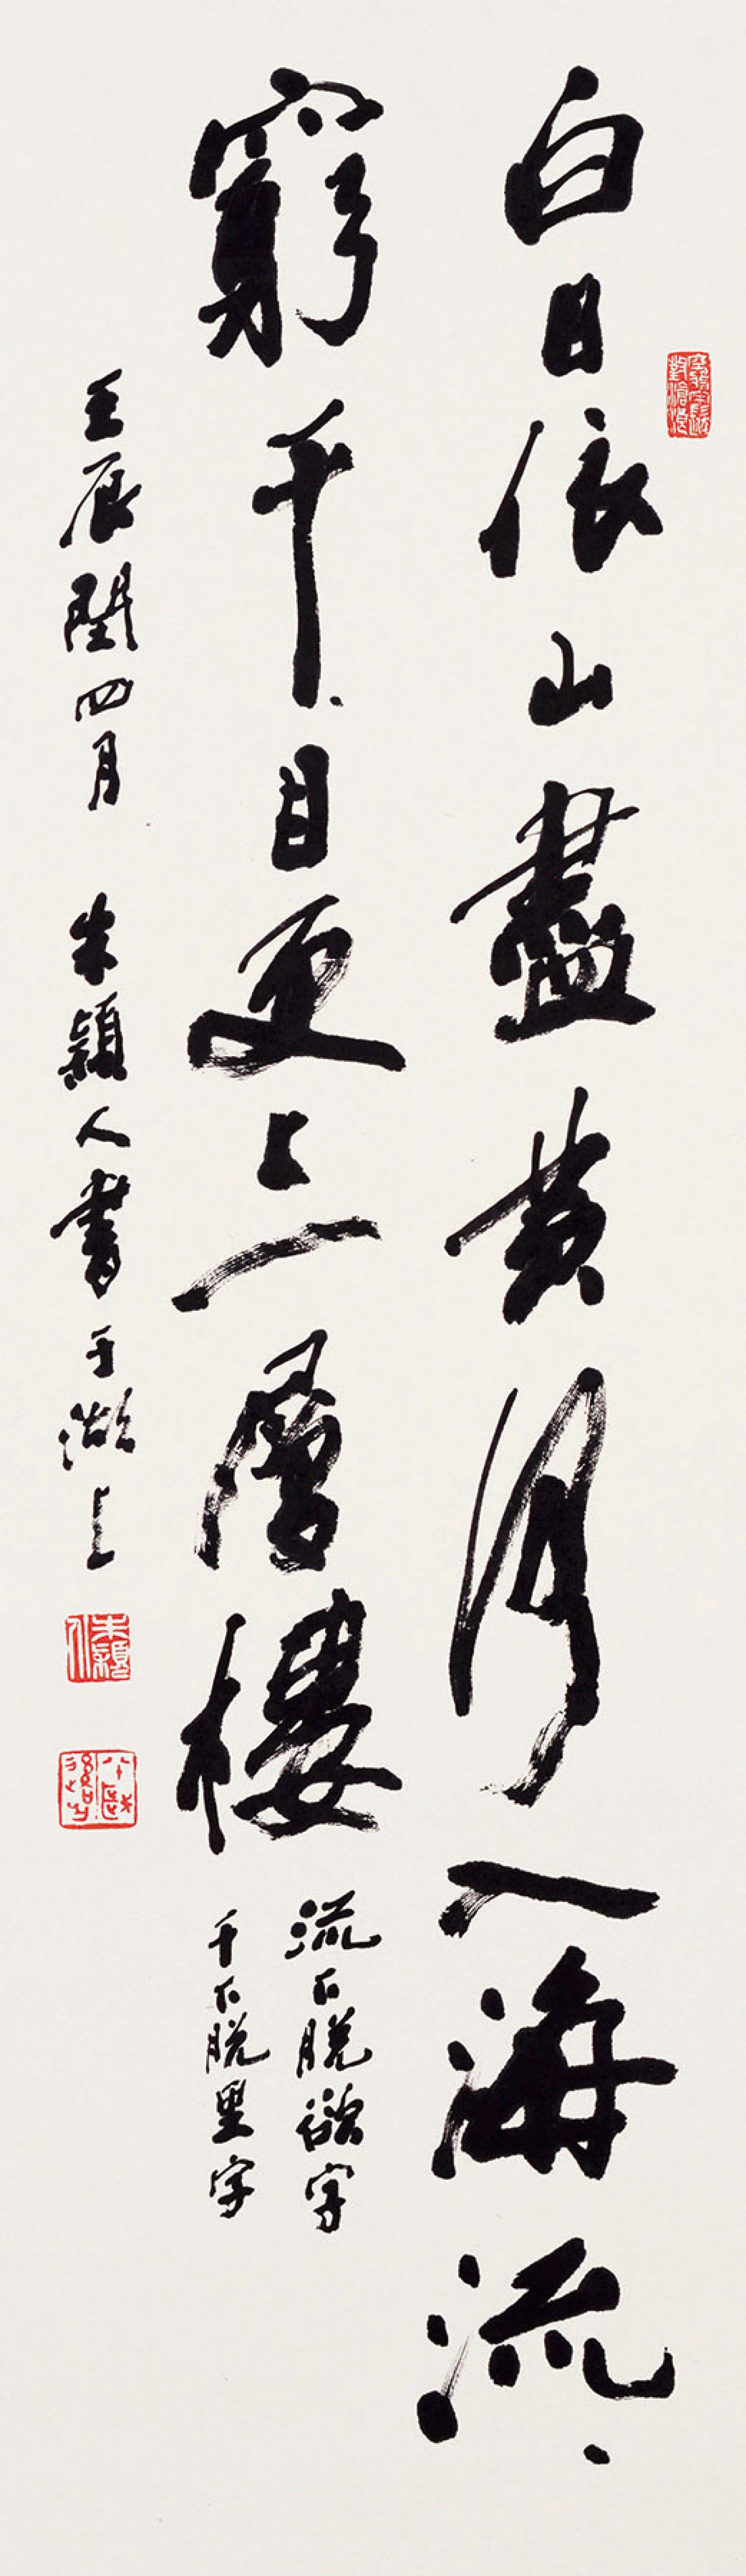 白日依山盡黄河入海流
窮千目更上一層樓
流下脱欲字
千下脱里字
壬辰閏四月 朱穎人書于湖上
朱穎人